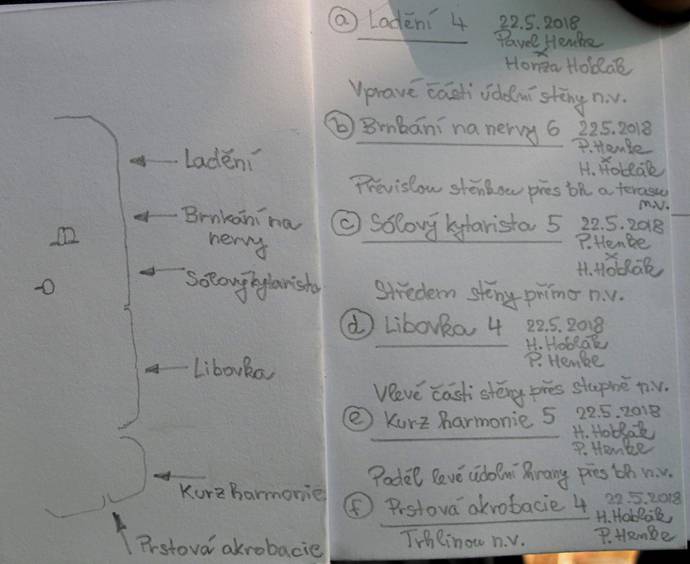 Ladění
Brnkání na
nervy
Sólový kytarista
Libovka
Kurz harmonie
Prstová akrobacie
a Ladění 4 22.5.2018
Pavel Henke
x
Honza Hoblák
Vpravé části údolní stěny n.v.
b Brnkání na nervy 6 22.5.2018
P. Henke
x
H. Hoblák
Převislou stěnkou přes bh a terasu
n.v.
c Sólový kytarista 5 22.5.2018
P. Henke
x
H. Hoblák
Středem stěny přímo n.v.
d Libovka 4 22.5.2018
H. Hoblák
P. Henke
Vlevé části stěny přes stupně n.v.
e Kurz harmonie 5 22.5.2018
H. Hoblák
P. Henke
Podél levé údolní hrany přes bh n.v.
f Prstová akrobacie 4 22.5.2018
H. Hoblák
Trhlinou n.v. P. Henke